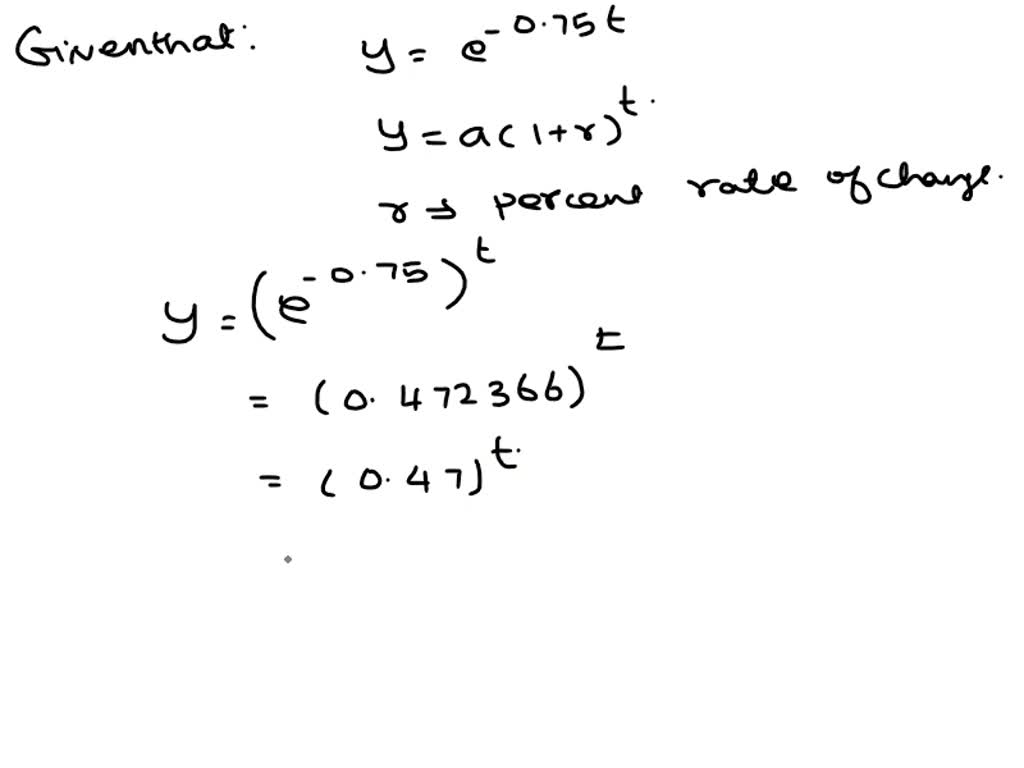 Giventhat: y = e^{-0.75t}
y = a(1+r)^{t}.
r → percent rate of change.
y = (e^{-0.75})^{t}
= (0.472366)^{t}
= (0.47)^{t}.